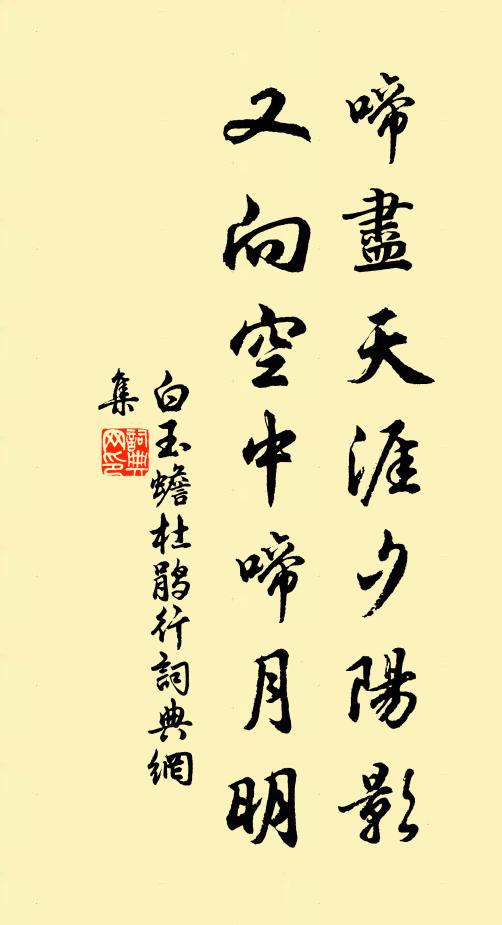 啼盡天涯夕陽影
又向空中啼月明
白玉蟾杜鵑行詞典網
集
詞典
网印